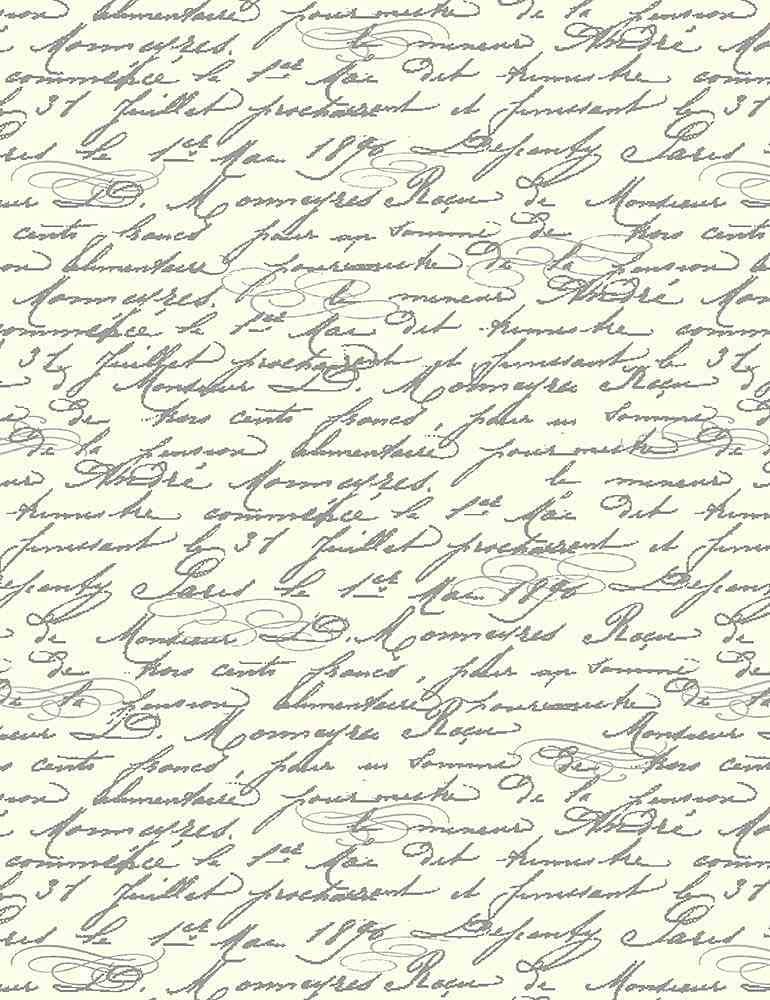 pension alimentaire pour notre De la pension
Monnayres. le mineur André
commence le 1er Mai dit trimestre comm
le 31 Juillet prochainent et finissant le 31
Paris le 1er Mai 1896 Defeanty Paris
D. Monnayres Reçu de Monsieur
cents francs, pour un Somme De trois cents
alimentaire pour notre De la pension
Monnayres. le mineur André Mo
commence le 1er Mai dit trimestre comm
31 Juillet prochainent et finissant le 31
Monsieur D. Monnayres Reçu
De trois cents francs, pour un Somme De
De la pension alimentaire pour notre De
André Monnayres. le mineur
trimestre commence le 1er Mai dit trim
finissant le 31 Juillet prochainent et finiss
Defeanty Paris le 1er Mai 1896 Defeanty
de Monsieur D. Monnayres Reçu de
De trois cents francs, pour un Somme De
De la pension alimentaire pour notre De la
D. Monnayres Reçu Monsieur
cents francs, pour un Somme De trois cents
alimentaire pour notre De la pension
Monnayres. le mineur André Mo
commence le 1er Mai dit trimestre comm
31 Juillet prochainent et finissant le 31
Paris le 1er Mai 1896 Defeanty Paris
D. Monnayres Reçu de Monsieur